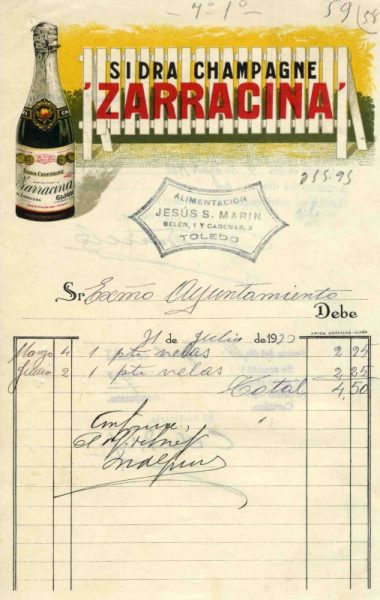 7º 1º
59/58
SIDRA CHAMPAGNE
'ZARRACINA'
SIDRA CHAMPAGNE
Zarracina
GIJON
ALIMENTACION
JESÚS S. MARIN
BELÉN, 1 Y CADENAS, 2
TOLEDO
Sr. Exmo Ayuntamiento
Debe
21 de Julio de 19
Marzo 4 1 pte velas 2 25
2 1 pte velas 2 25
Total 4,50
Conforme,